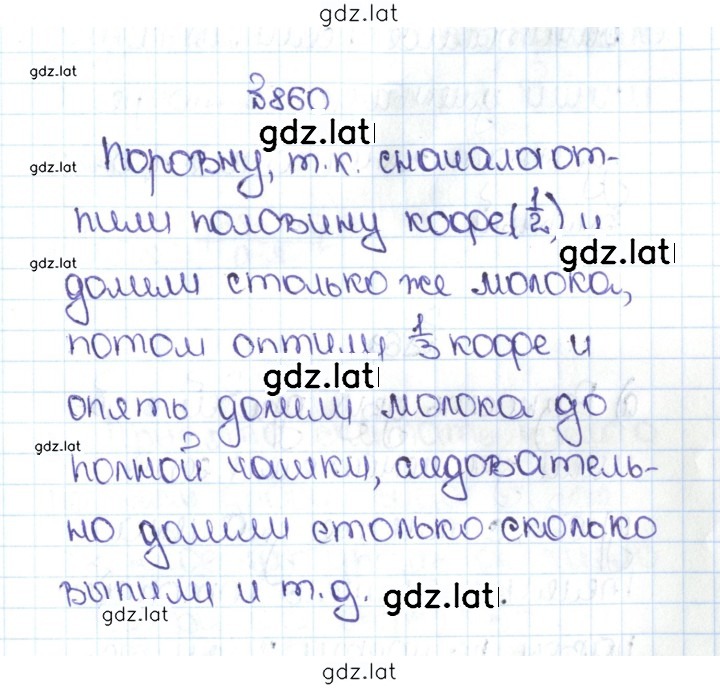 gdz.lat
gdz.lat
860
gdz.lat
Поровну, т.к. сначала от-
gdz.lat
пили половину кофе (1/2) и
gdz.lat
gdz.lat
долили столько же молока,
потом оптили 1/3 кофе и
gdz.lat
опять долили молока до
gdz.lat
полной чашки, следователь-
но долили столько сколько
выпили и т.д.
gdz.lat
gdz.lat
gdz.lat